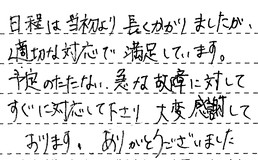 日程は当初より長くかかりましたが、
適切な対応で満足しています。
予定のたたない急な故障に対して
すぐに対応して下さり大変感謝して
おります。ありがとうございました